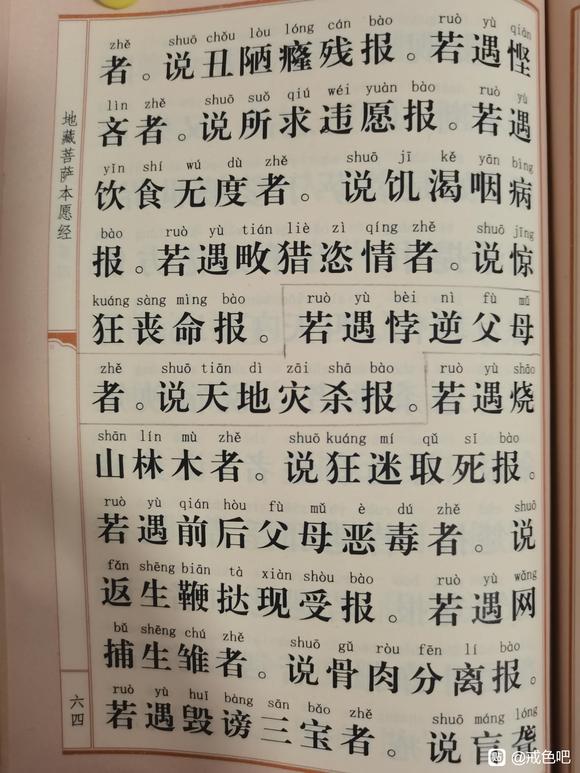 zhě shuō chǒu lòu lóng cán bào ruò yù qiān
者。说丑陋癃残报。若遇悭
lìn zhě shuō suǒ qiú wéi yuàn bào ruò yù
吝者。说所求违愿报。若遇
yǐn shí wú dù zhě shuō jī kě yān bìng
饮食无度者。说饥渴咽病
bào ruò yù tián liè zì qíng zhě shuō jīng
报。若遇畋猎恣情者。说惊
kuáng sàng mìng bào ruò yù bèi nì fù mǔ
狂丧命报。若遇悖逆父母
zhě shuō tiān dì zāi shā bào ruò yù shāo
者。说天地灾杀报。若遇烧
shān lín mù zhě shuō kuáng mí qǔ sǐ bào
山林木者。说狂迷取死报。
ruò yù qián hòu fù mǔ è dú zhě shuō
若遇前后父母恶毒者。说
fǎn shēng biān tà xiàn shòu bào ruò yù wǎng
返生鞭挞现受报。若遇网
bǔ shēng chú zhě shuō gǔ ròu fēn lí bào
捕生雏者。说骨肉分离报。
ruò yù huǐ bàng sān bǎo zhě shuō máng lóng
若遇毁谤三宝者。说盲聋
地藏菩萨本愿经
六四
贴 @戒色吧